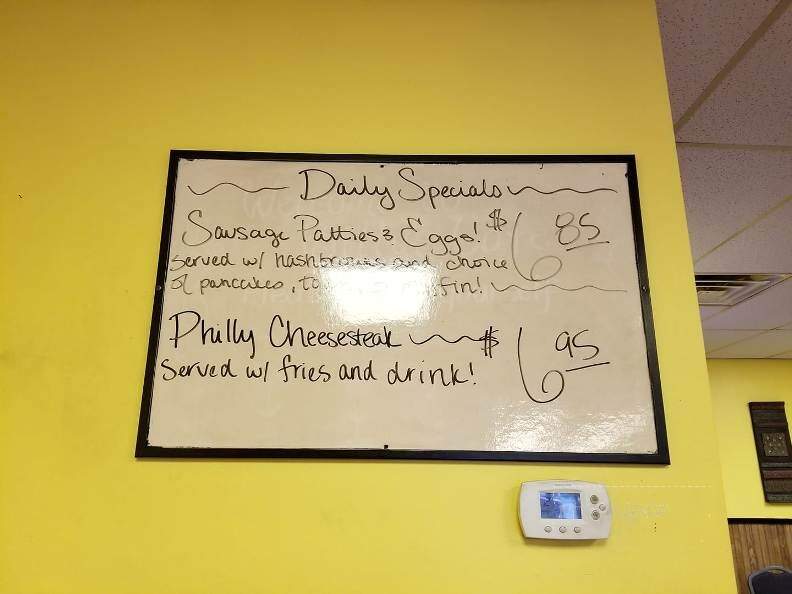 Daily Specials
Sausage Patties & Eggs! $6.85
Served w/ hashbrowns and choice
of pancakes,
Philly Cheesesteak $6.95
Served w/ fries and drink!